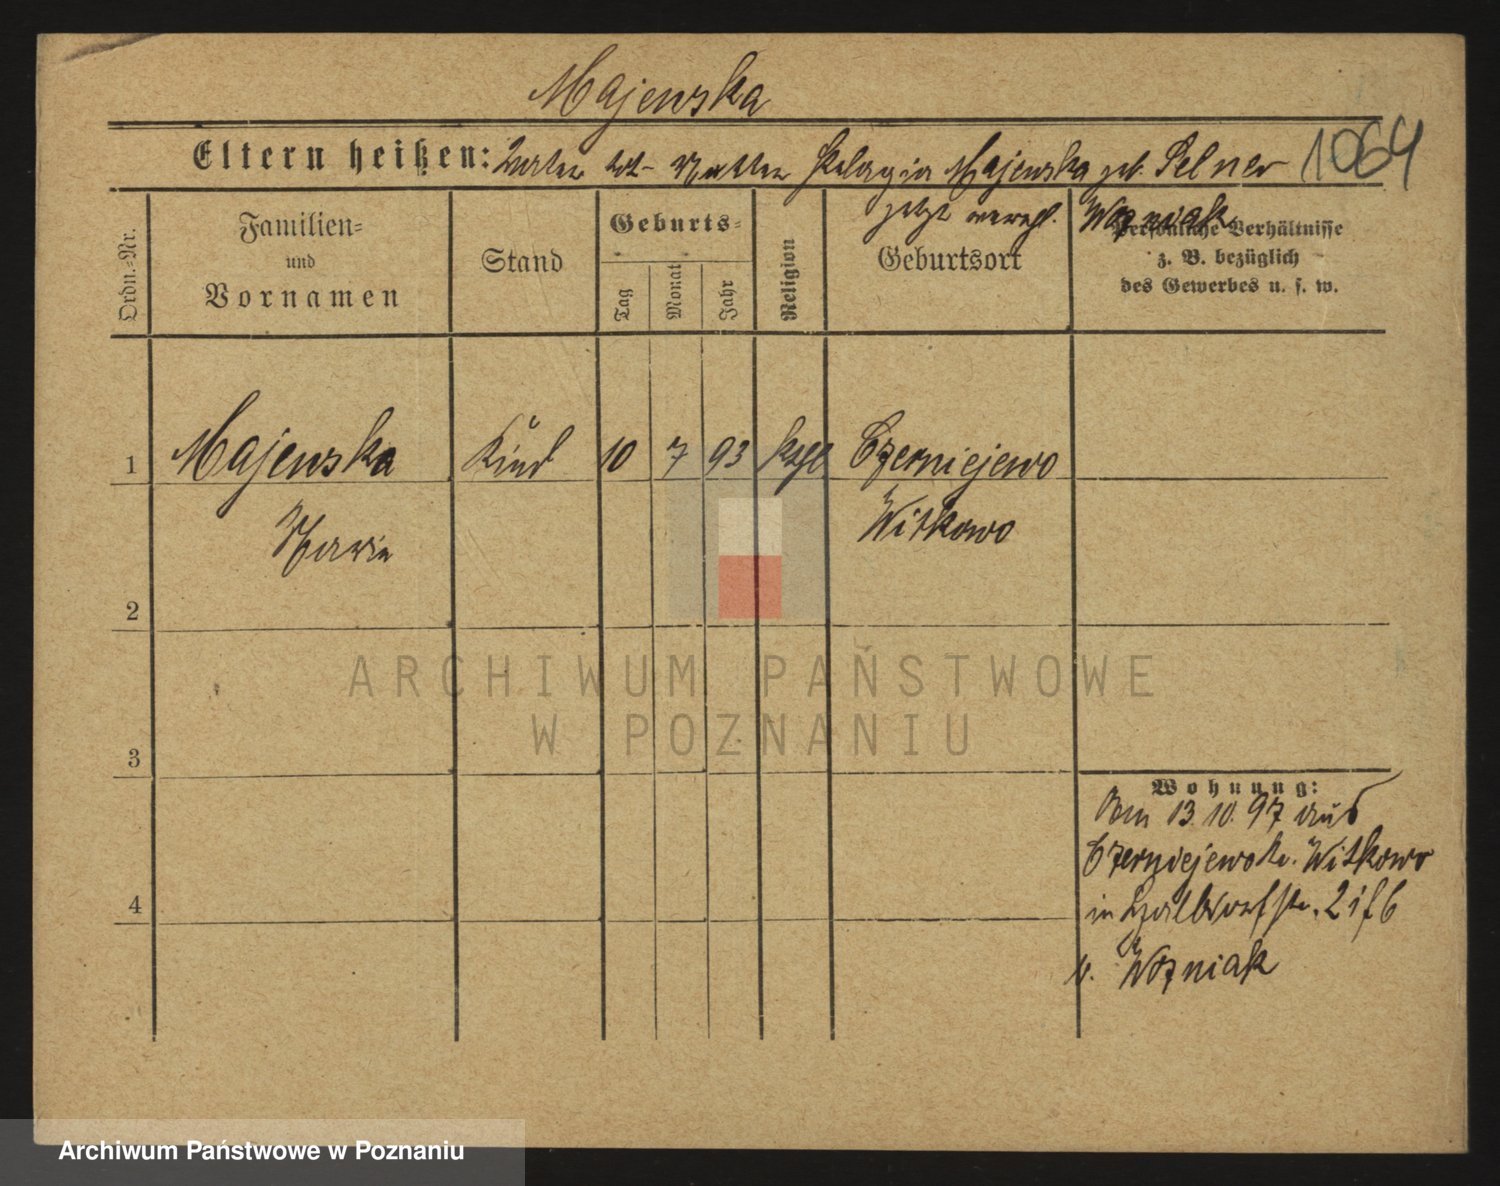 Majewska
Eltern heißen: Vater tot - Mutter Pelagia Majewska geb. Selner 1064
jetzt verehl. Wozniak
Ordn.-Nr.
Familien- und Vornamen
Stand
Geburts-
Tag
Monat
Jahr
Religion
Geburtsort
Persönliche Verhältnisse
z. B. bezüglich
des Gewerbes u. s. w.
1 Majewska Kind 10 7 93 kath Czerniejewo
Maria Witkowo
2
ARCHIWUM PAŃSTWOWE
W POZNANIU
3
Wohnung:
Am 13. 10. 97 aus
Czerniejewo Kr. Witkowo
in 21 f 6
4
b. Wozniak
Archiwum Państwowe w Poznaniu